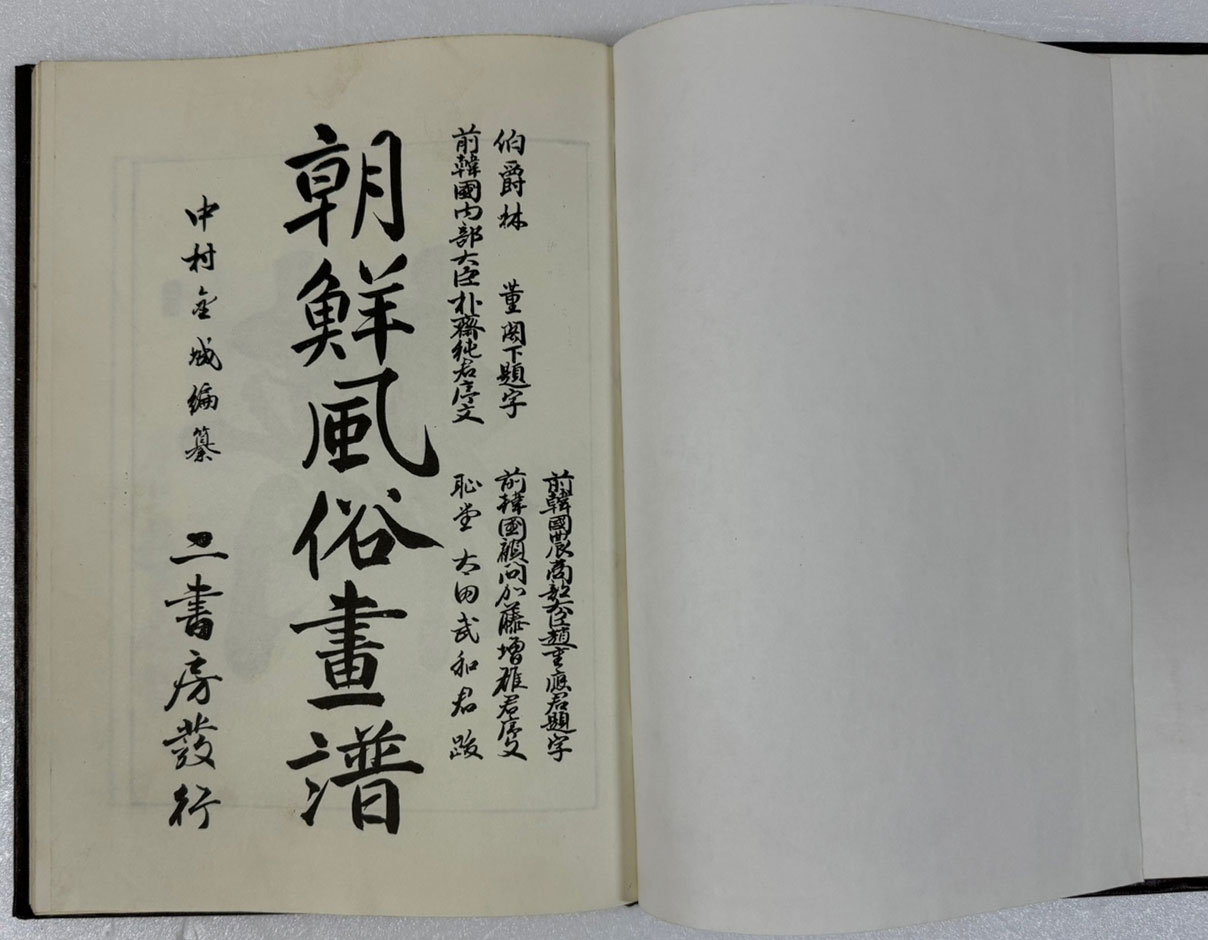 前韓國農商部大臣趙重應君題字
伯爵林 董閣下題字
前韓國顧問加藤增雄君序文
前韓國内部大臣朴齊純君序文
恥堂 太田武和君 跋
朝鮮風俗畫譜
中村金城編纂
二書房發行